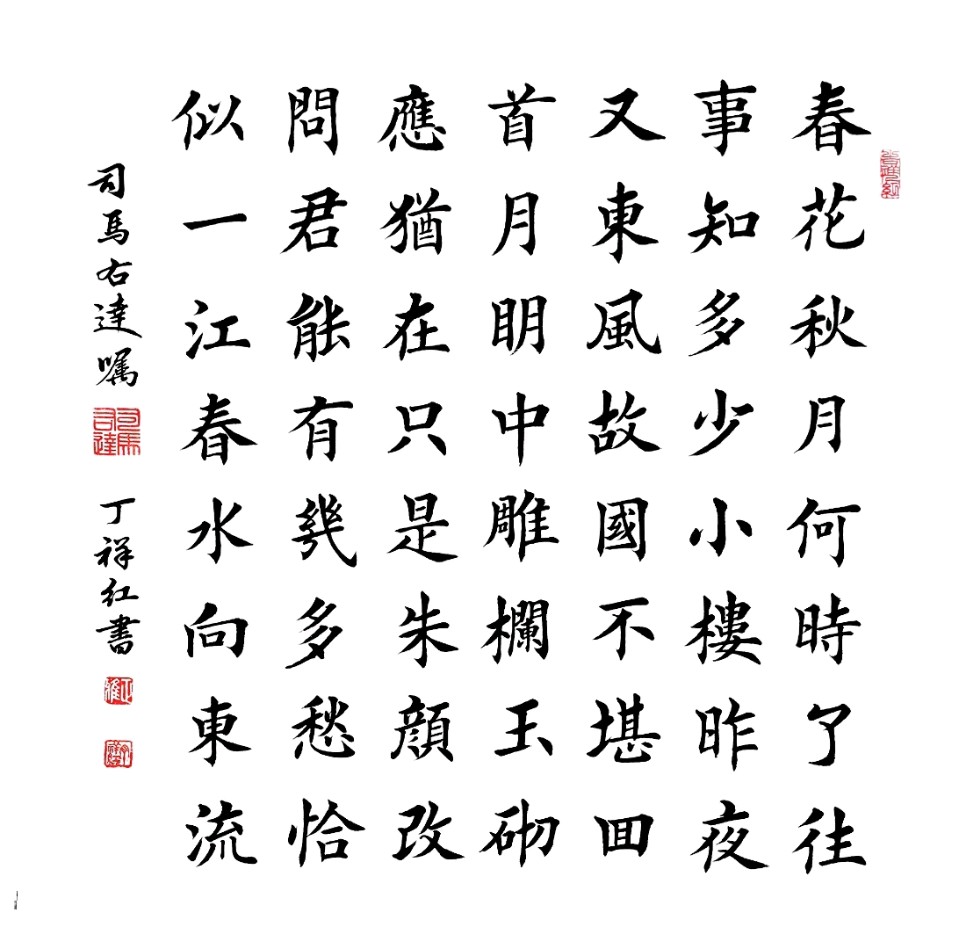 春花秋月何時了往
事知多少小樓昨夜
又東風故國不堪囬
首月眀中雕欄玉砌
應猶在只是朱顔改
問君能有幾多愁恰
似一江春水向東流
司馬右達嘱 丁祥红書